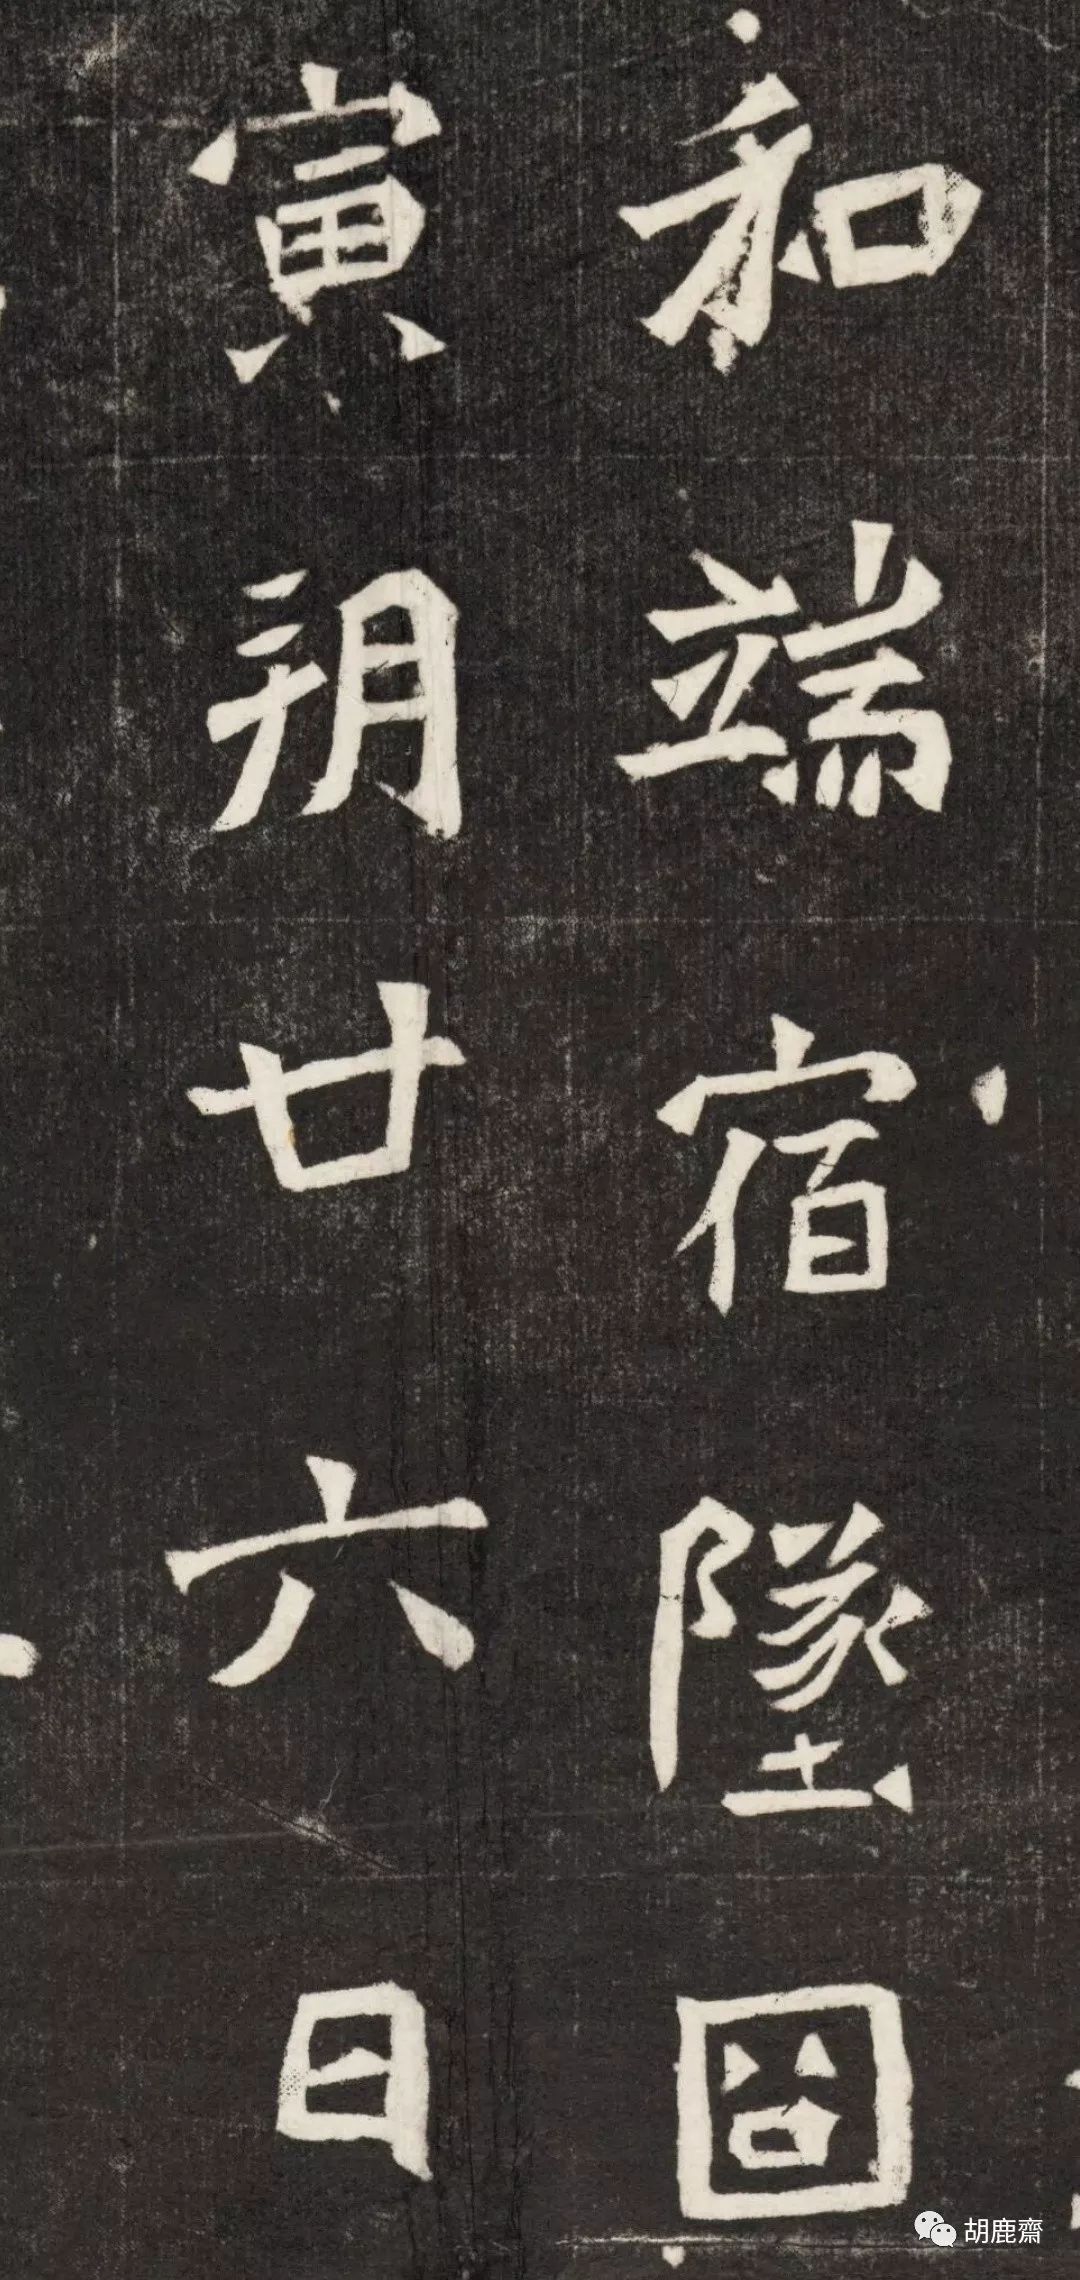 和端宿墜囧
寅朔廿六日
胡鹿齋